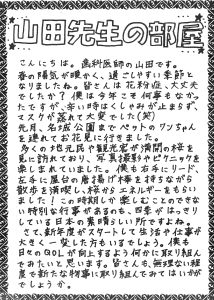 山田先生の部屋
こんにちは。歯科医師の山田です。
春の陽気が暖かく、過ごしやすい季節と
なりましたね。皆さんは花粉症、大丈夫
でしたか？僕は今年こそ何事もなかっ
たですが、辛い時はくしゃみが止まらず、
マスクが蒸れて大変でした(笑)
先月、名城公園までペットのワンちゃん
を連れてお花見に行きました。
多くの地元民や観光客が満開の桜を
見に訪れており、写真撮影やピクニックを
楽しまれていました。僕も右手にリード、
左手に屋台の唐揚げ棒を持ちながら
散歩を満喫し、桜からエネルギーをもらい
ました！この時期しか楽しむことのできない
特別な行事があるのも、四季がはっきり
している日本の素晴らしい所ですよね。
さて、新年度がスタートして生活や仕事が
大きく一変した方もいるでしょう。僕も
日々のQOLが向上するよう何かに取り組ん
でみたいと思います。皆さんも、無理ない程
度で新たな物事に取り組んでみてはいかが
でしょうか。